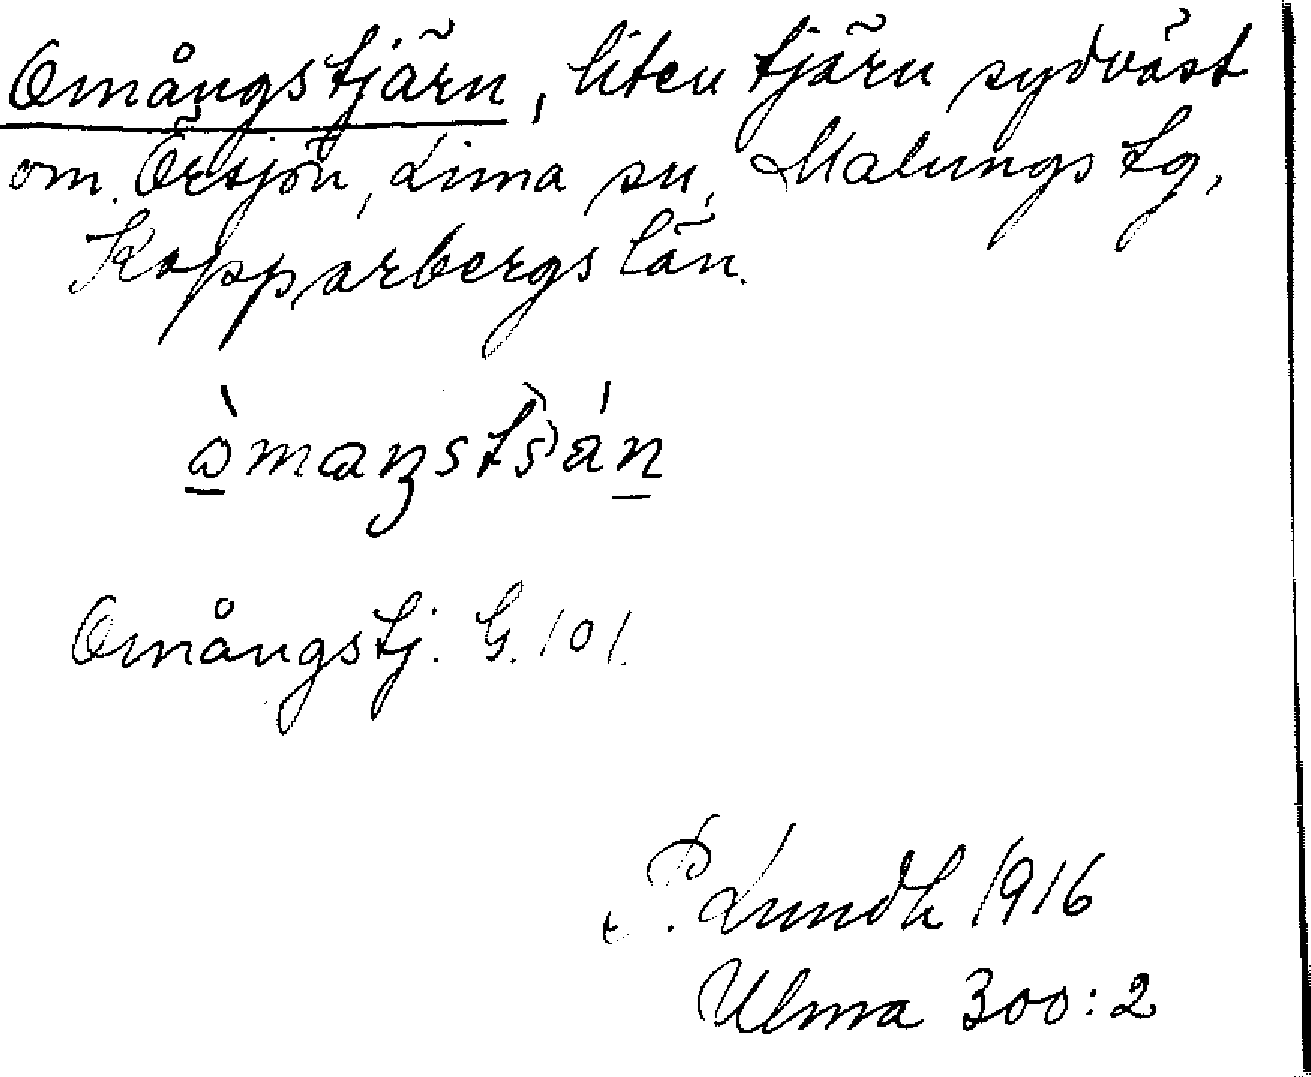 Omångstjärn, liten tjärn sydväst
om Örsjön, Lima sn, Malungs tg,
Kopparbergs län.
Omångstj. G. 101.
P. Lundh 1916
Ulma 300:2